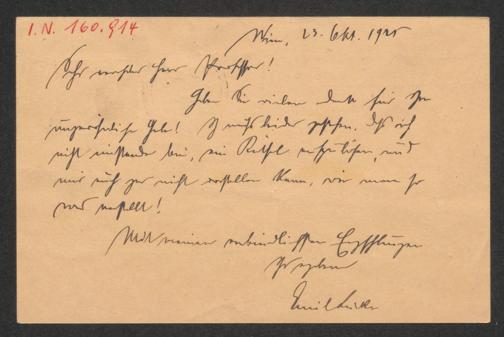 I.N. 160.914
Wien, 23. Okt. 1925
Sehr verehrter Herr Professor!
Haben Sie vielen Dank für Ihre
Gabe! Ich muß leider gestehen, daß ich
nicht imstande bin, ein Rätsel aufzulösen, und
mir auch gar nicht vorstellen kann, wie man so
was anstellt!
Mit meinen verbindlichsten Empfehlungen
Ihr ergebener
Emil Lucka